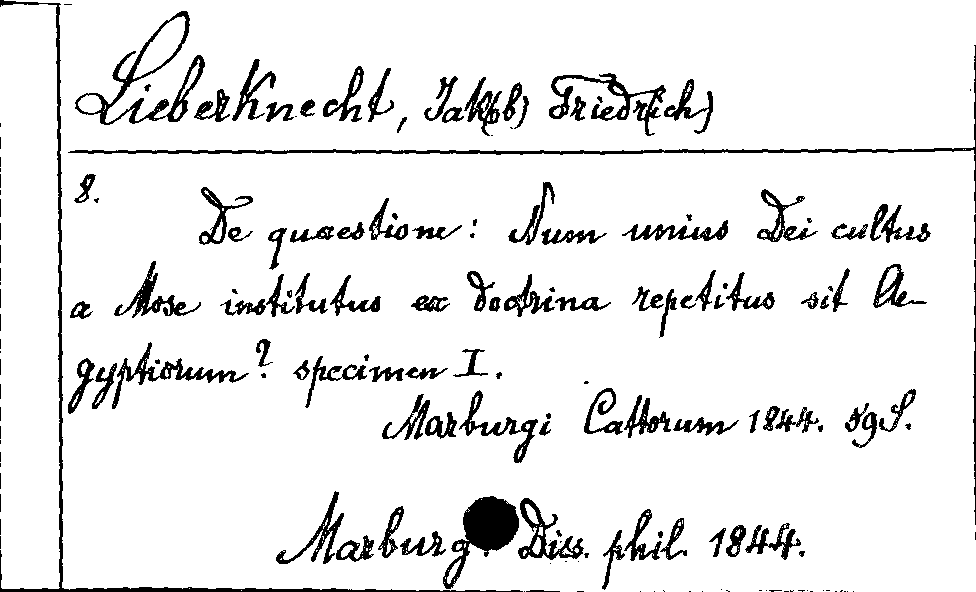 Lieberknecht, Jak(ob) Friedr(ich)
8.
De quaestione: Num unius Dei cultus
a Mose institutus ex doctrina repetitus sit Ae-
gyptiorum? specimen I.
Marburgi Cattorum 1844. 59 S.
Marburg. Diss. phil. 1844.